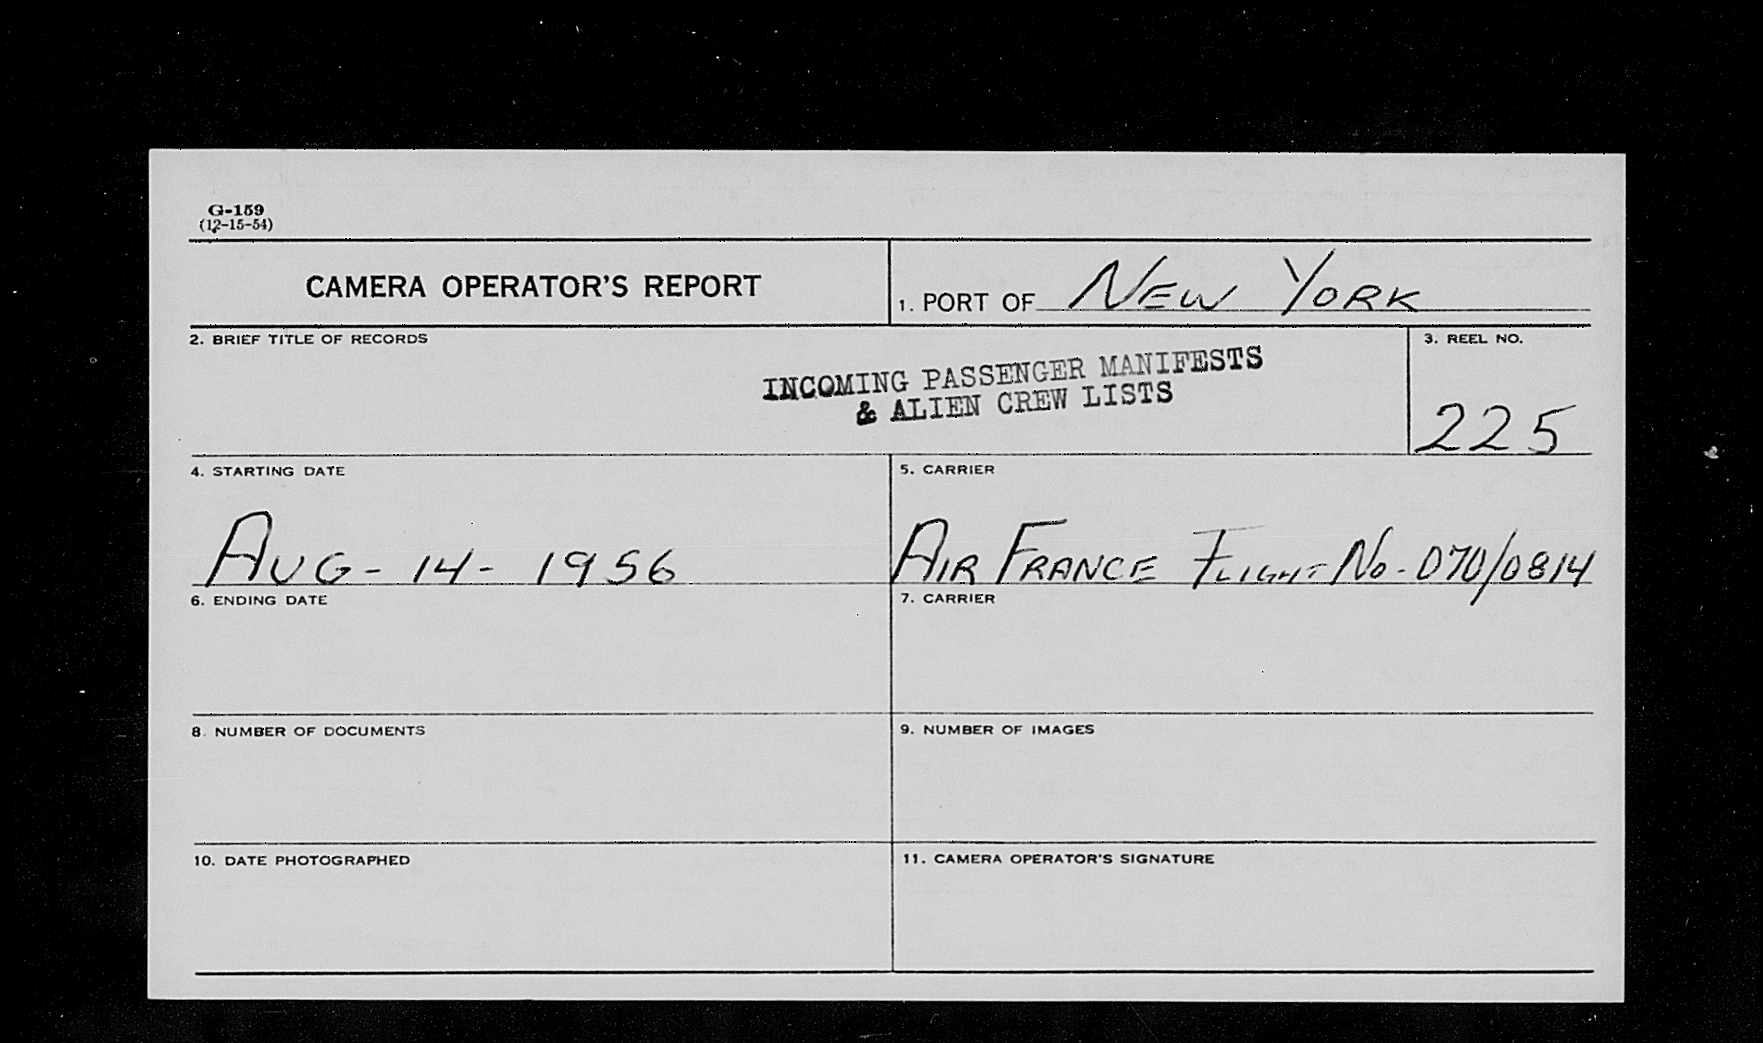 G-159
(12-15-54)
CAMERA OPERATOR'S REPORT
1. PORT OF NEW YORK
2. BRIEF TITLE OF RECORDS
INCOMING PASSENGER MANIFESTS
& ALIEN CREW LISTS
3. REEL NO.
225
4. STARTING DATE
AUG- 14- 1956
5. CARRIER
AIR FRANCE FLIGHT NO. 070/0814
6. ENDING DATE
7. CARRIER
8. NUMBER OF DOCUMENTS
9. NUMBER OF IMAGES
10. DATE PHOTOGRAPHED
11. CAMERA OPERATOR'S SIGNATURE